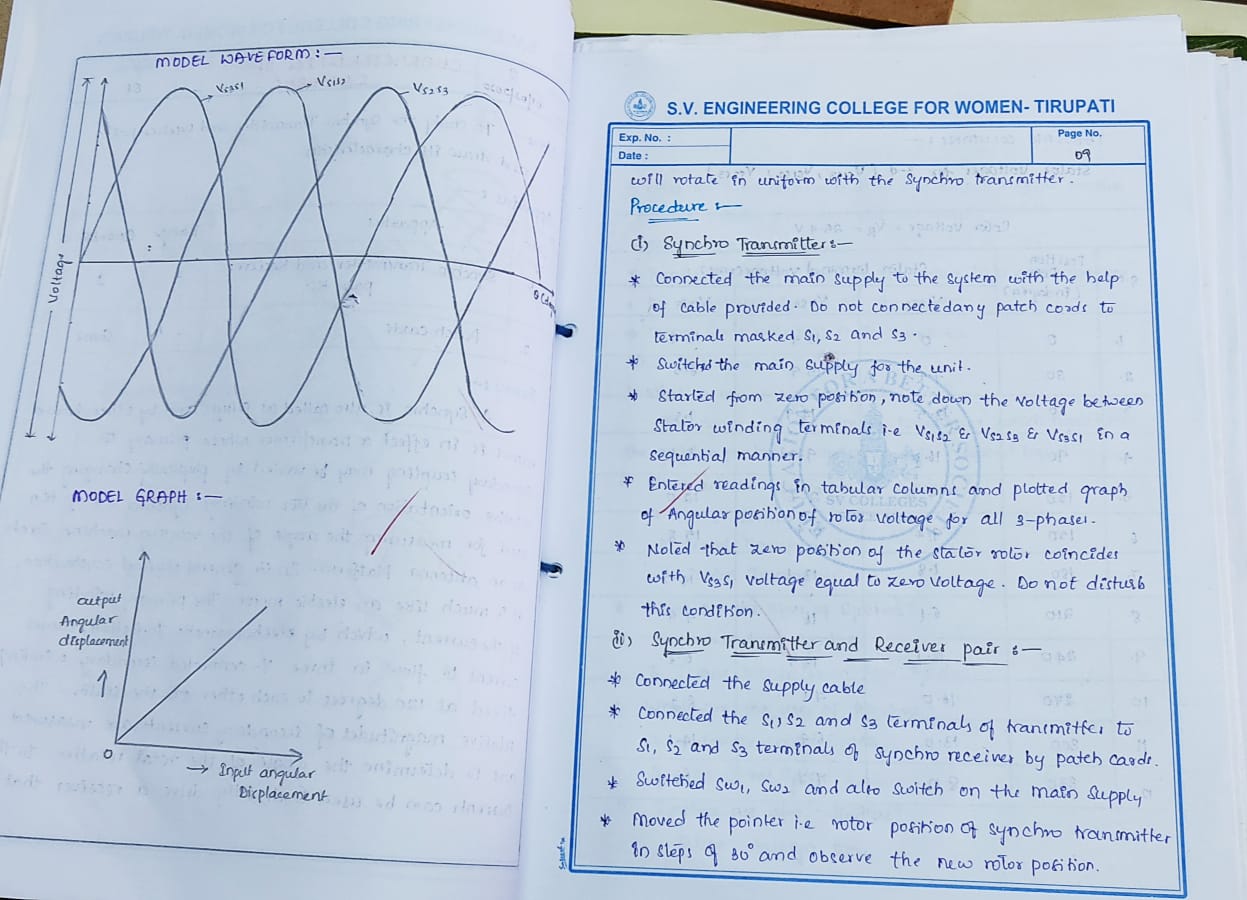 MODEL WAVEFORM :-
Vs3s1
Vs1s2
Vs2s3
Voltage
MODEL GRAPH :-
output
Angular
displacement
O
→ Input angular
Displacement
S.V. ENGINEERING COLLEGE FOR WOMEN- TIRUPATI
Exp. No. :
Date :
Page No.
09
will rotate in uniform with the synchro transmitter.
Procedure :-
(i) Synchro Transmitter :-
* Connected the main supply to the system with the help
of cable provided. Do not connectedany patch cords to
terminals masked S1, S2 and S3.
* Switched the main supply for the unit.
* Started from zero position, note down the voltage between
Stator winding terminals i.e Vs1s2 & Vs2s3 & Vs3s1 in a
sequential manner.
* Entered readings in tabular columns and plotted graph
of Angular position of rotor voltage for all 3-phases.
* Noted that zero position of the stator rotor coincides
with Vs3s1 voltage equal to zero voltage. Do not disturb
this condition.
(ii) Synchro Transmitter and Receiver pair :-
* Connected the supply cable
* Connected the S1, S2 and S3 terminals of transmitter to
S1, S2 and S3 terminals of synchro receiver by patch cards.
* Switched SW1, SW2 and also switch on the main supply
* Moved the pointer i.e rotor position of synchro transmitter
in steps of 30° and observe the new rotor position.